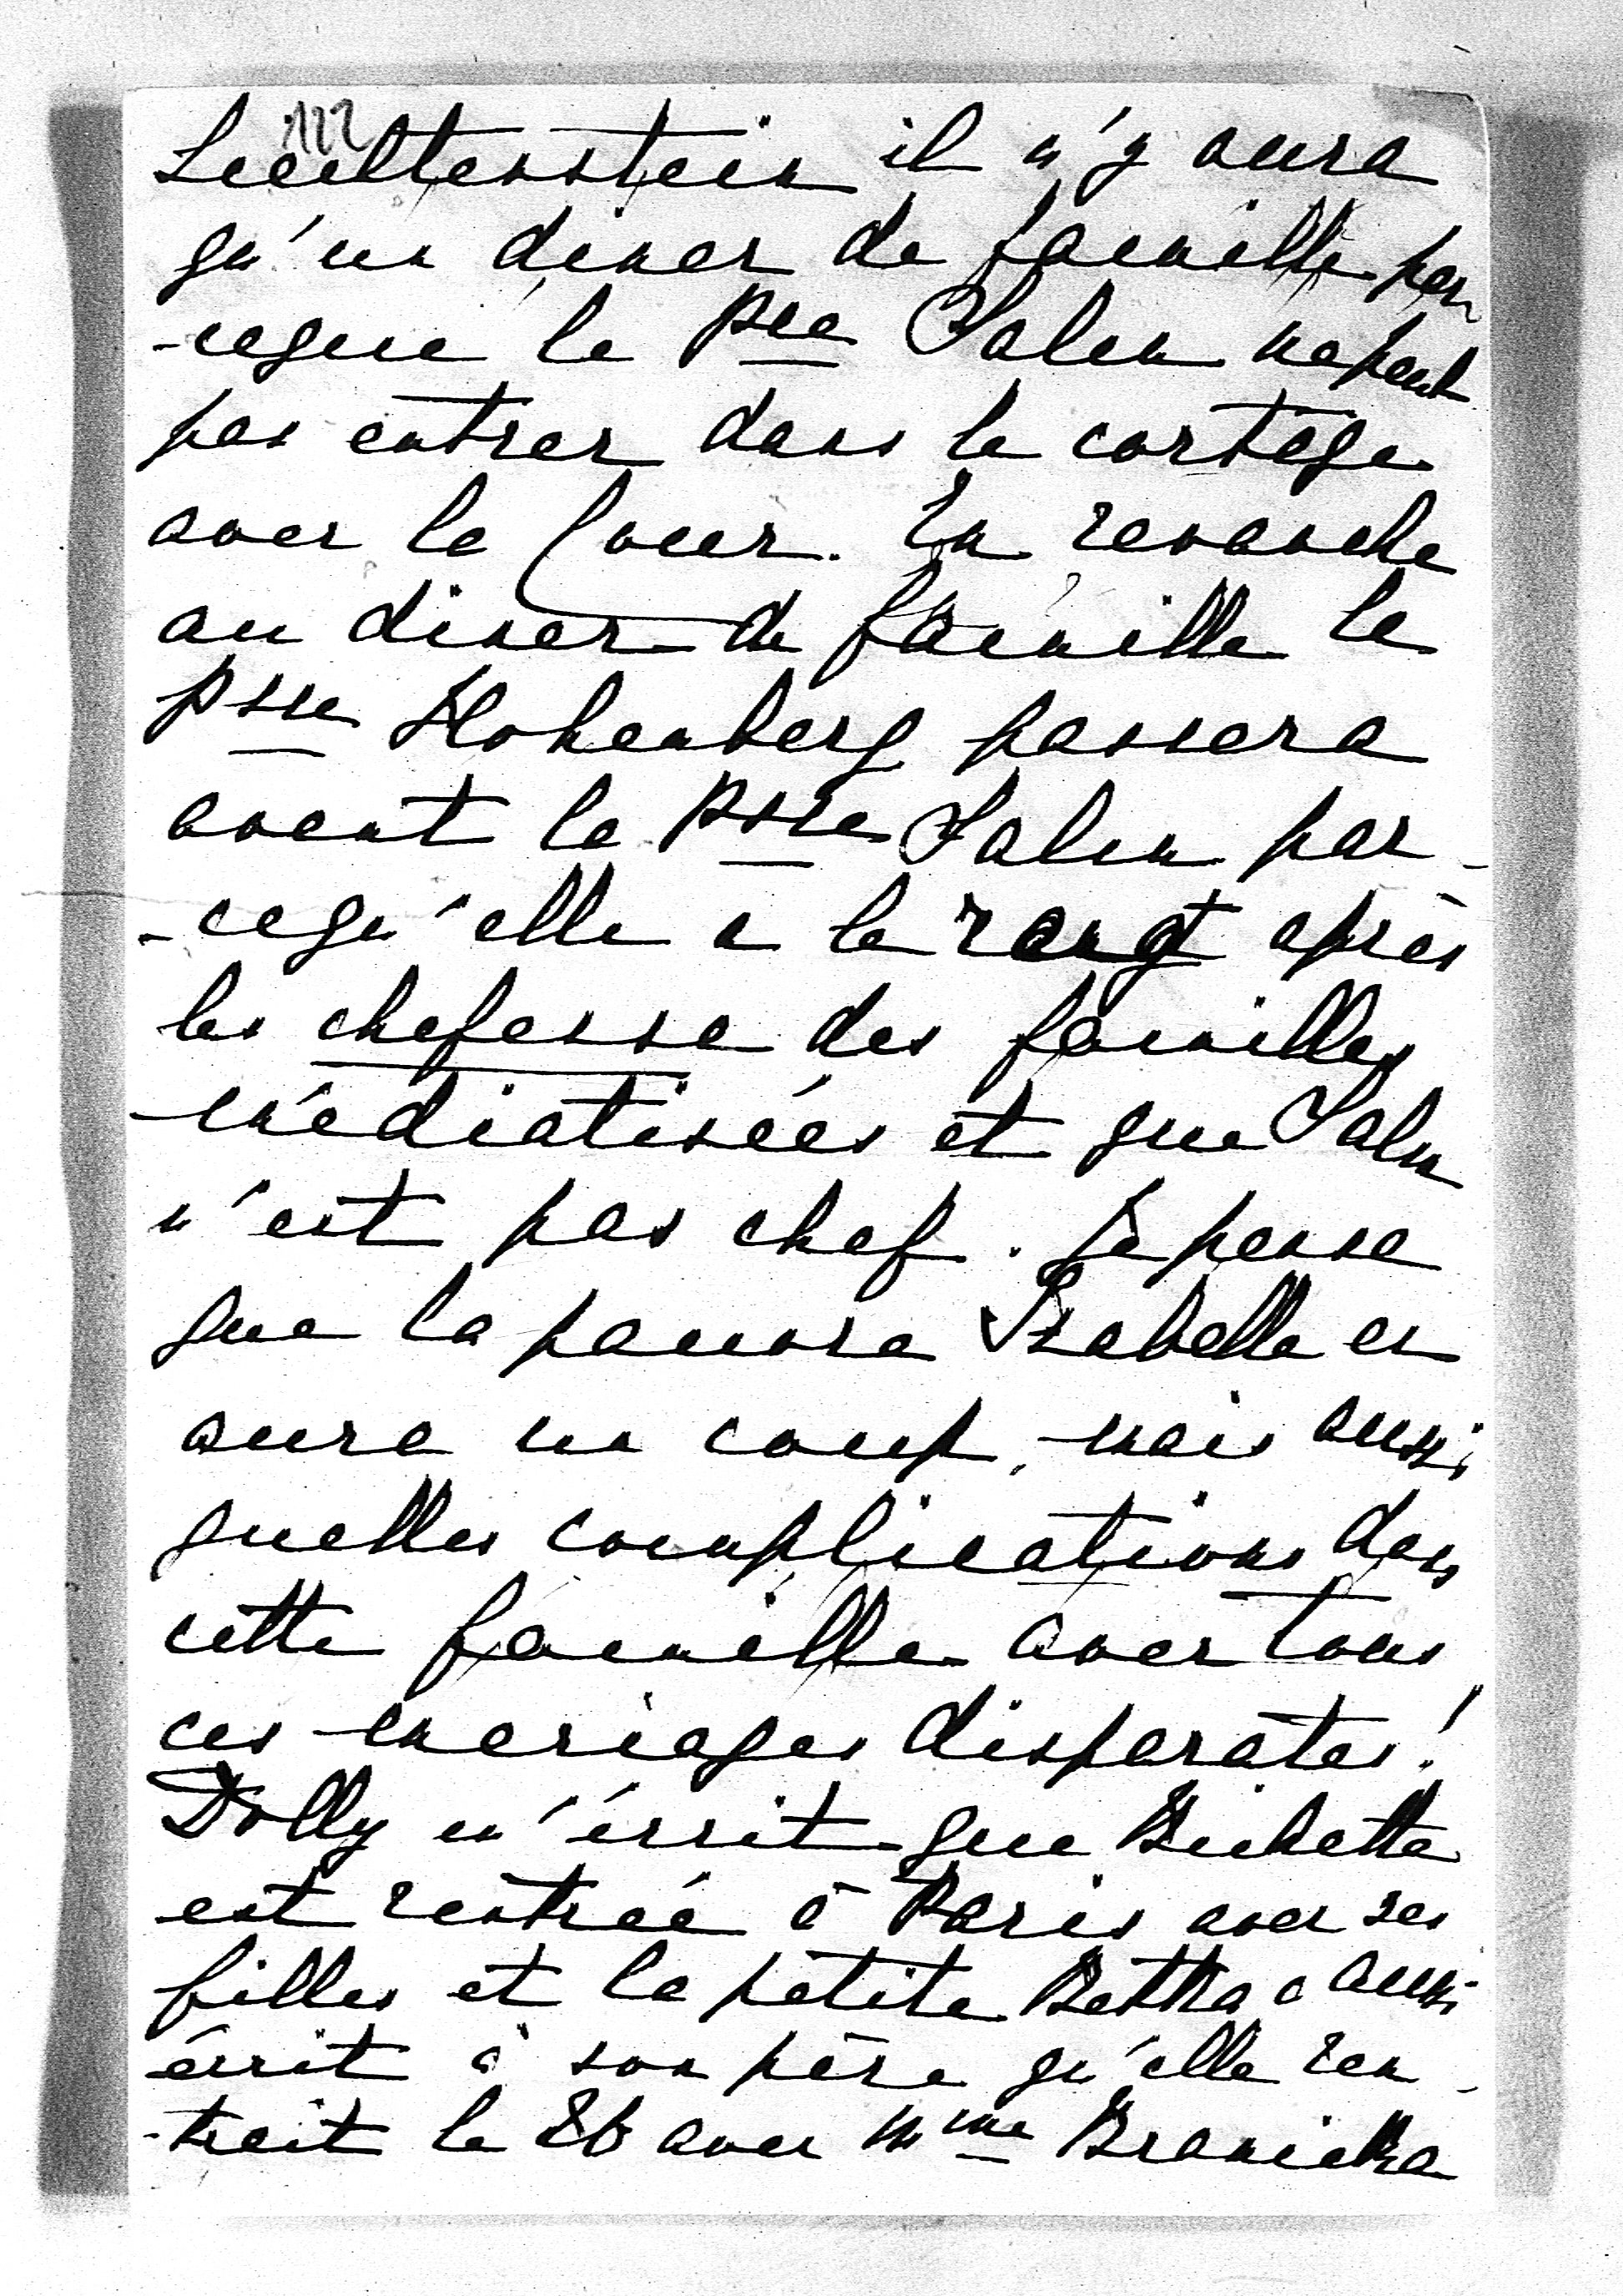 112
Liechtenstein il n'y aura
qu'un diner de famille par
-ceque le Pce Salm ne peut
pas entrer dans le cortège
avec la Cour. En revanche
au diner de famille la
Psse Hohenberg passera
avant la Psse Salm par-
-cequ'elle a le rang après
les chefesse des familles
médiatisées et que Salm
n'est pas chef. Je pense
que la pauvre Isabelle en
aura un coup, mais aussi
quelles complications dans
cette famille avec tous
ces mariages disparates!
Dolly m'écrit que Bichette
est rentrée à Paris avec ses
filles et la petite Betka a aussi
écrit à son père qu'elle ren-
-trait le 26 avec Mme Branicka